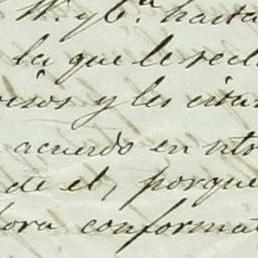 W. y C.ª hasta
la que le reci
isos y les cita
acuerdo en ntr
de el, porque
ora conformat